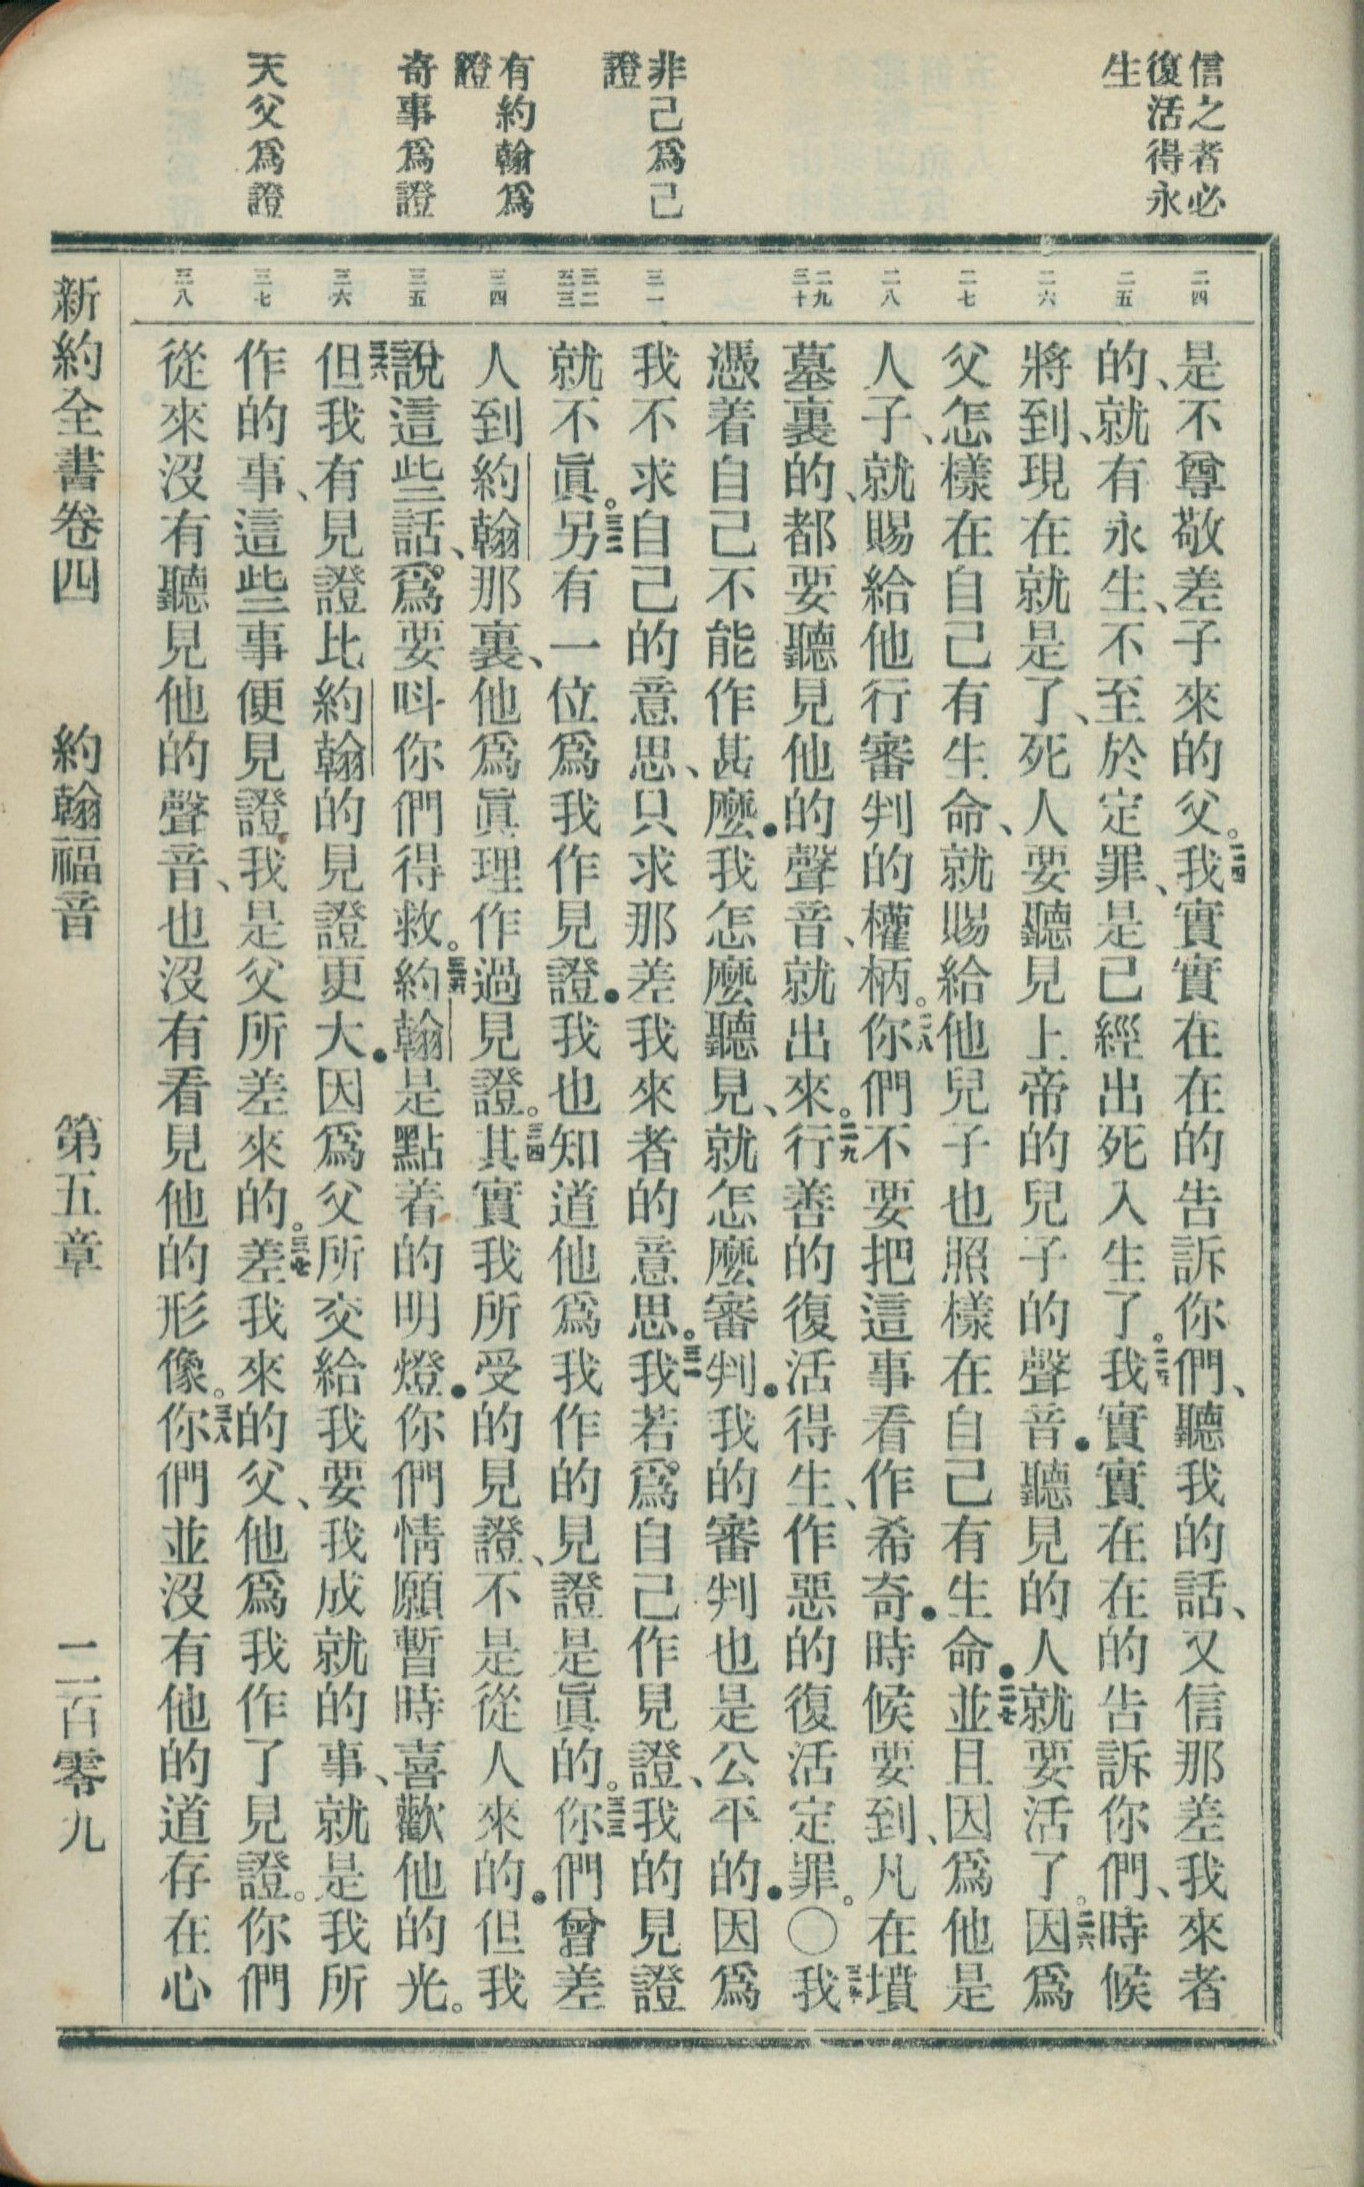 信之者必
復活得永
生
非己爲己
證
有約翰爲
證
奇事爲證
天父爲證
二四
二五
二六
二七
二八
二九
三十
三一
三二
三三
三四
三五
三六
三七
三八
是不尊敬差子來的父。二四我實實在在的告訴你們、聽我的話、又信那差我來者
的、就有永生、不至於定罪、是已經出死入生了。二五我實實在在的告訴你們、時候
將到、現在就是了、死人要聽見上帝的兒子的聲音●聽見的人就要活了。二六因爲
父怎樣在自己有生命、就賜給他兒子也照樣在自己有生命●二七並且因爲他是
人子、就賜給他行審判的權柄。二八你們不要把這事看作希奇●時候要到、凡在墳
墓裏的、都要聽見他的聲音、就出來。二九行善的復活得生、作惡的復活定罪。〇三十我
憑着自己不能作甚麼●我怎麼聽見、就怎麼審判●我的審判也是公平的●因爲
我不求自己的意思、只求那差我來者的意思。三一我若爲自己作見證、我的見證
就不眞。三二另有一位爲我作見證●我也知道他爲我作的見證是眞的。三三你們曾差
人到約翰那裏、他爲眞理作過見證。三四其實我所受的見證、不是從人來的●但我
說這些話、爲要呌你們得救。三五約翰是點着的明燈●你們情願暫時喜歡他的光。
三六但我有見證比約翰的見證更大●因爲父所交給我要我成就的事、就是我所
作的事、這些事便見證我是父所差來的。三七差我來的父、他爲我作了見證。你們
從來沒有聽見他的聲音、也沒有看見他的形像。三八你們並沒有他的道存在心
新約全書卷四　約翰福音　第五章　二百零九